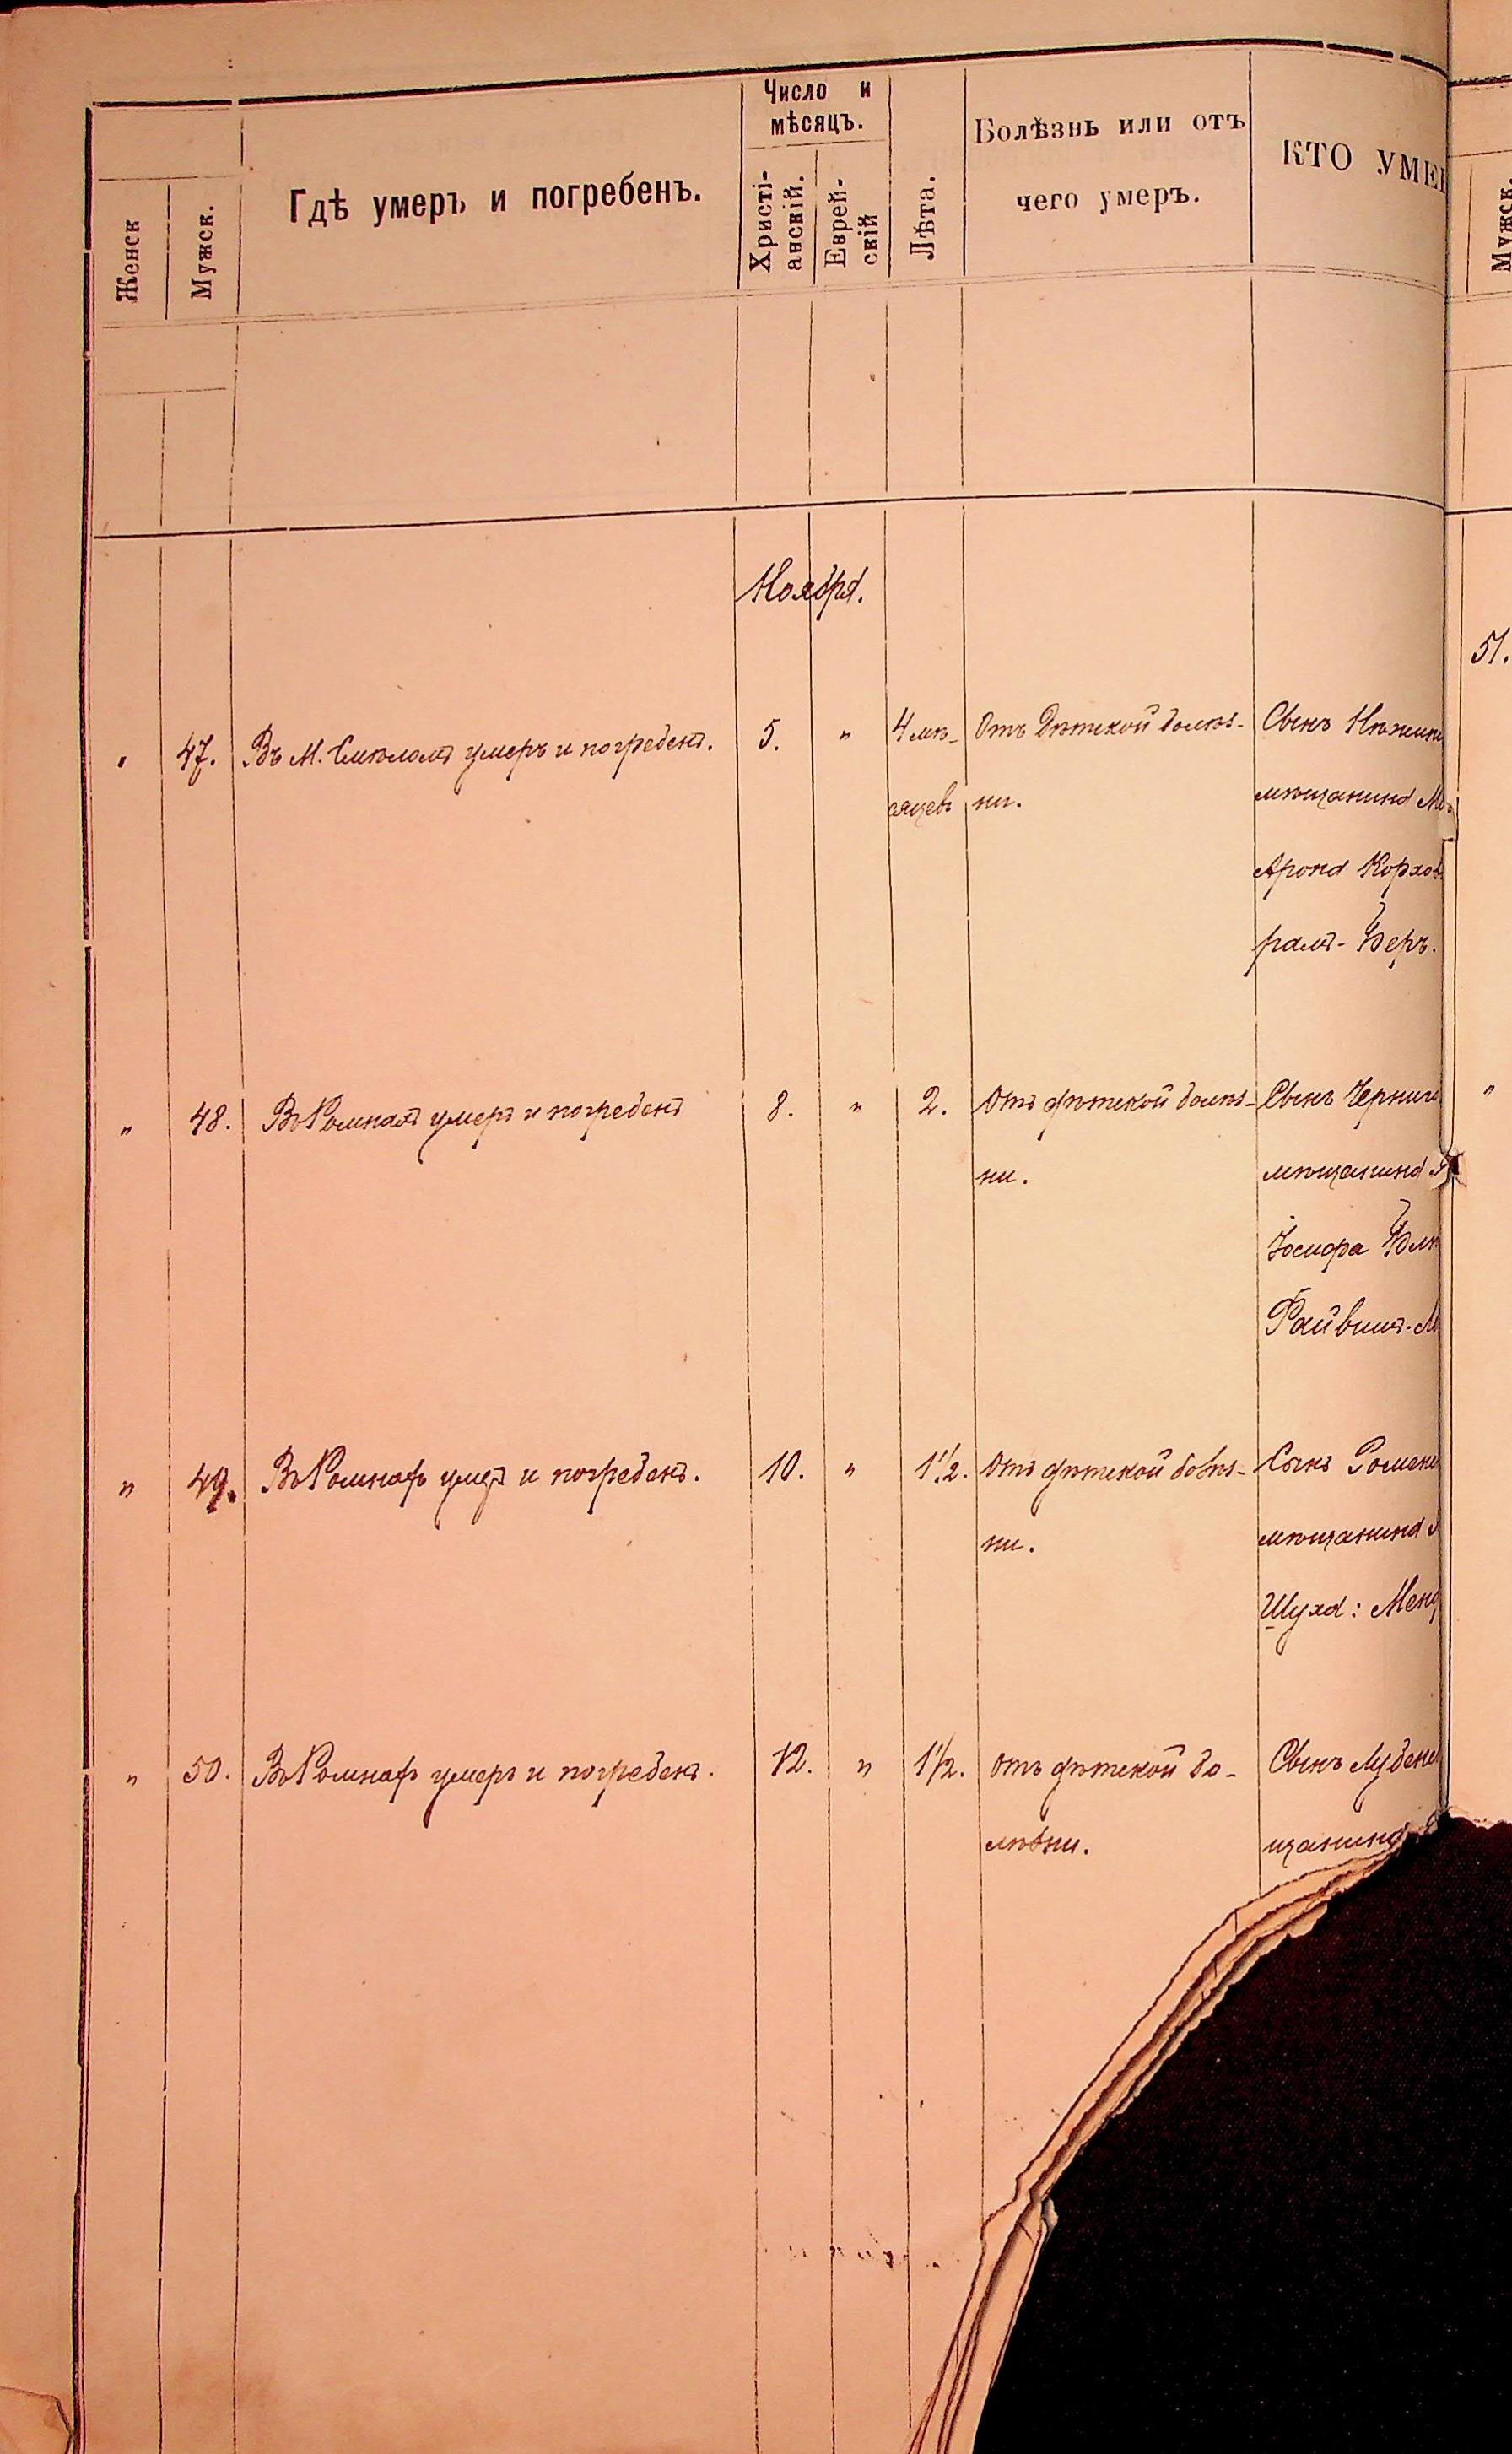 Женск
Мужск.
Гдѣ умеръ и погребенъ.
Число и
мѣсяцъ.
Христі-
анскій.
Еврей-
скій
Лѣта.
Болѣзнь или отъ
чего умеръ.
КТО УМЕ
Мужск.
Ноября.
51.
" 47. Въ М. Смѣломъ умеръ и погребенъ. 5. " 4 мѣ- Отъ Дѣтской болѣз- Сынъ Нѣжин
сяцевъ ни. мѣщанина М
Арона Корхов
рамъ-Беръ.
" 48. Въ Ромнахъ умеръ и погребенъ 8. " 2. Отъ дѣтской болѣз- Сынъ Черниг "
ни. мѣщанина
Іосифа
Файвишъ-М
" 49. Въ Ромнахъ умеръ и погребенъ. 10. " 1 1/2. Отъ дѣтской болѣз- Сынъ Ромен
ни. мѣщанина
Шуха: Менд
" 50. Въ Ромнахъ умеръ и погребенъ. 12. " 1 1/2. Отъ дѣтской бо- Сынъ Лубен
лѣзни. щанина